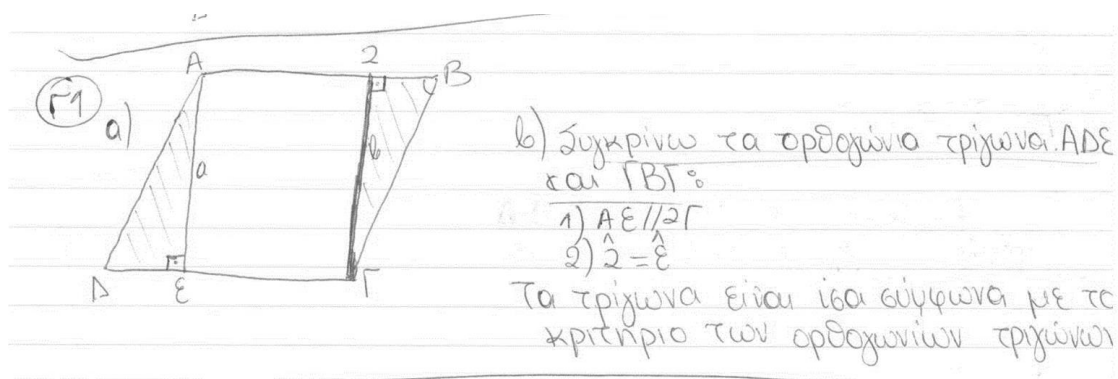 Γ1
α)
Α
2
Β
α
β
Δ
Ε
Γ
β) Συγκρίνω τα ορθογώνια τρίγωνα: ΑΔΕ
και ΓΒΓ:
1) ΑΕ//2Γ
2) 2̂ = Ε̂
Τα τρίγωνα είναι ίσα σύμφωνα με το
κριτήριο των ορθογωνίων τριγώνων